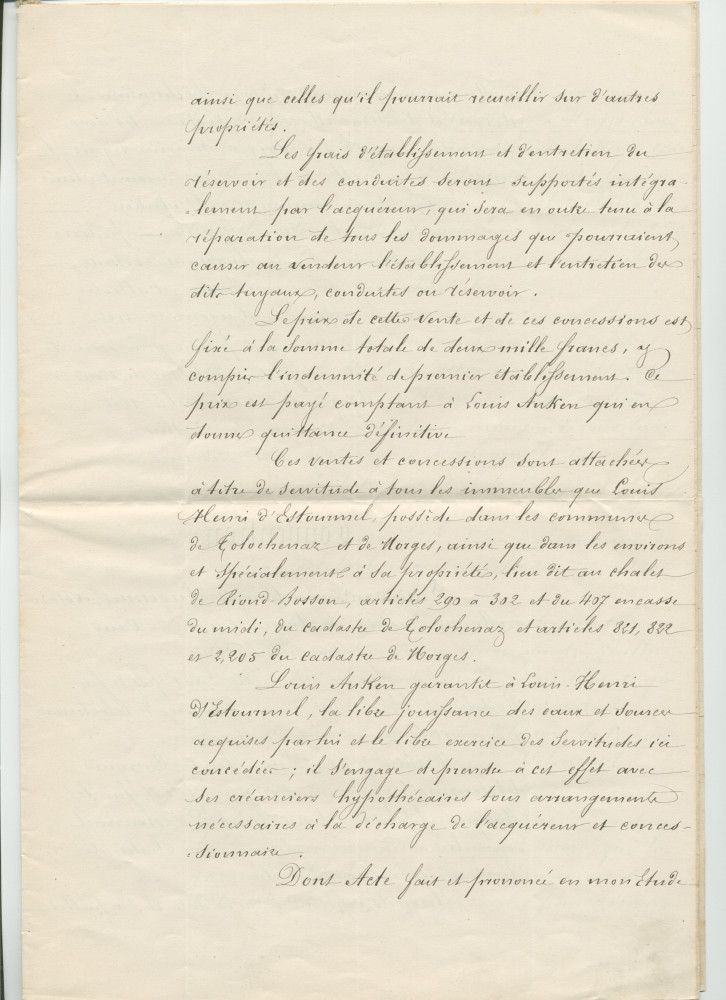 ainsi que celles qu'il pourrait recueillir sur d'autres
propriétés.
Les frais d'établissement et d'entretien du
réservoir et des conduites seront supportés intégra-
-lement par l'acquéreur, qui sera en outre tenu à la
réparation de tous les dommages que pourraient
causer au vendeur l'établissement et l'entretien des
dits tuyaux, conduites ou réservoir.
Le prix de cette vente et de ces concessions est
fixé à la somme totale de deux mille francs, y
compris l'indemnité de premier établissement. Ce
prix est payé comptant à Louis Anken qui en
donne quittance définitive
Ces ventes et concessions sont attachées
à titre de servitude à tous les immeubles que Louis
Henri d'Estourmel, possède dans les communes
de Tolochenaz et de Morges, ainsi que dans les environs
et spécialement à sa propriété, lieu dit au chalet
de Riond-Bosson, articles 290 à 302 et du 407 en casse
du midi, du cadastre de Tolochenaz et articles 821, 822
et 2,205 du cadastre de Morges.
Louis Anken garantit à Louis-Henri
d'Estourmel, la libre jouissance des eaux et sources
acquises par lui et le libre exercice des servitudes ici
concédées; il s'engage de prendre à cet effet avec
ses créanciers hypothécaires tous arrangements
nécessaires à la décharge de l'acquéreur et conces-
-sionnaire.
Dont Acte fait et prononcé en mon Etude